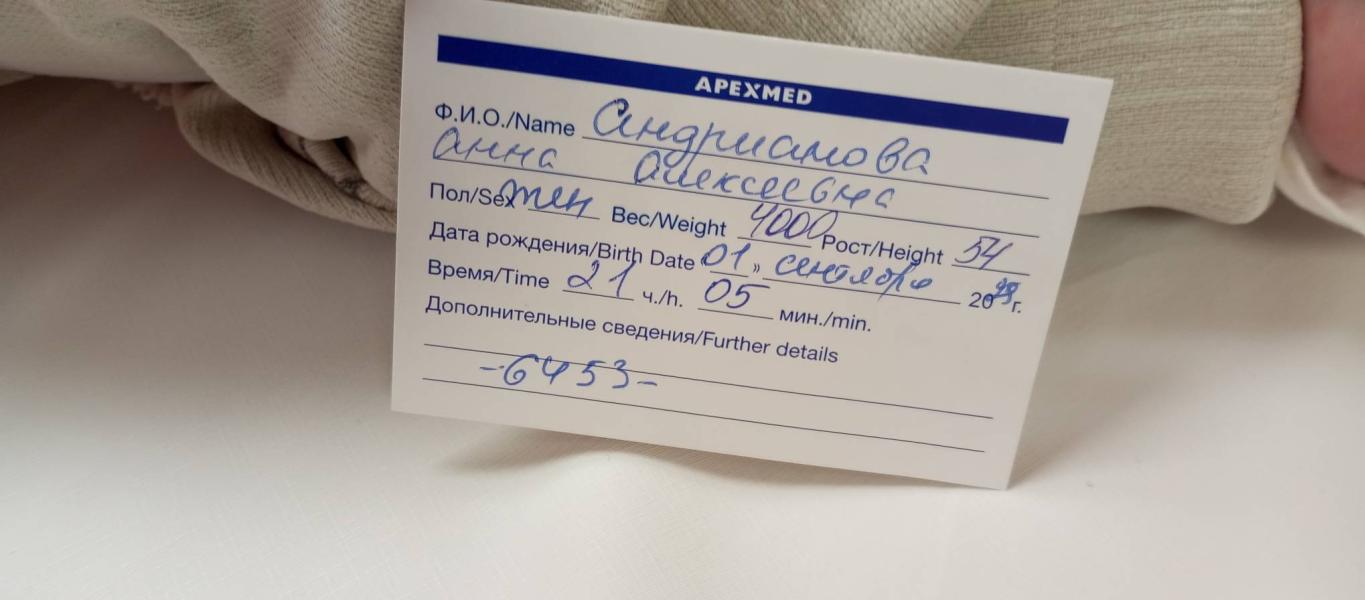 APEXMED
Ф.И.О./Name Андрианова
Анна Алексеевна
Пол/Sex жен Вес/Weight 4000 Рост/Height 54
Дата рождения/Birth Date 01 » сентября 20 г.
Время/Time 21 ч./h. 05 мин./min.
Дополнительные сведения/Further details
-6453-